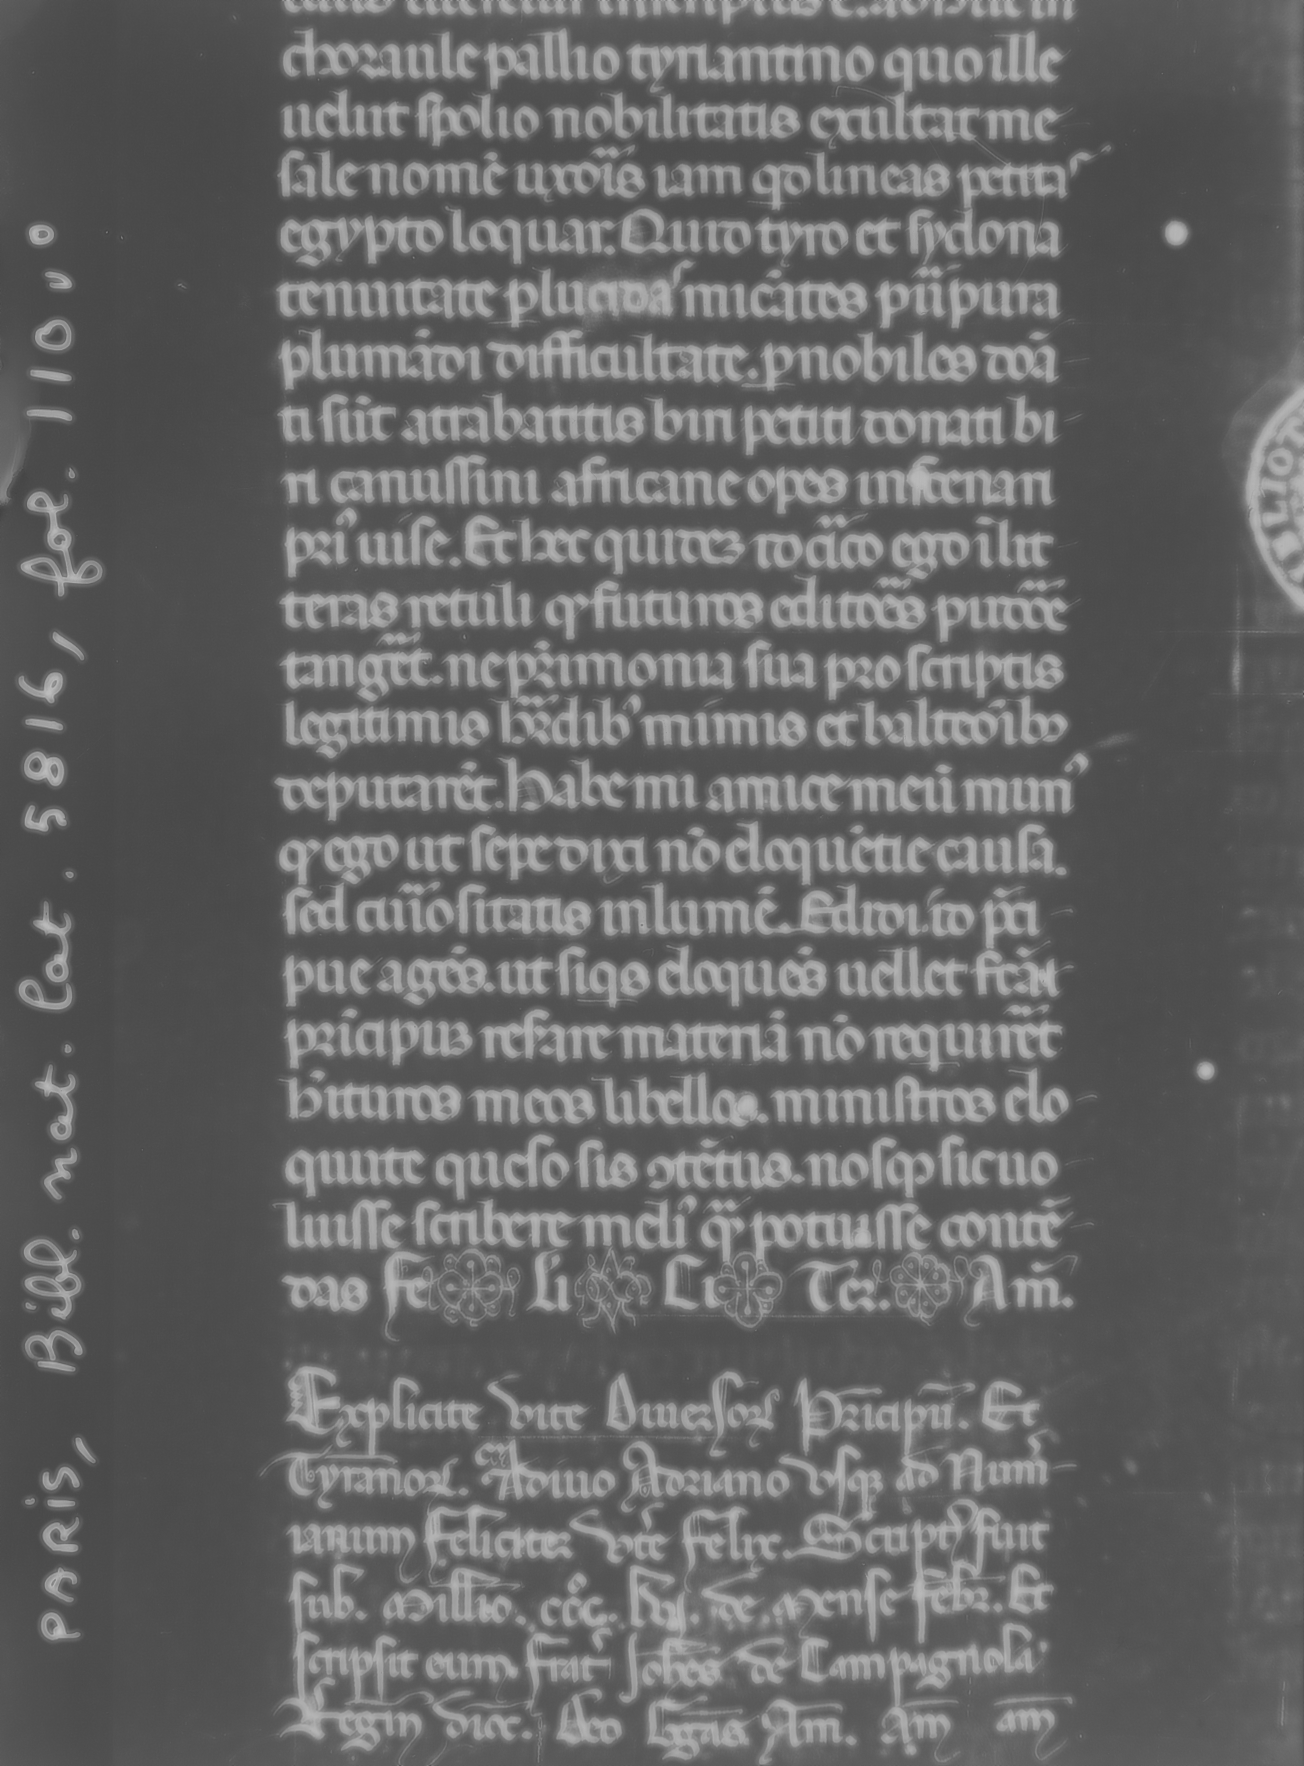 choraule pallio tyriantino quo ille
uelut spolio nobilitatis exultat me
sale nomē uxoris iam qd lineas petitas
egypto loquar. Quid tyro et sydona
tenuitate plucidas micātes purpura
plumādi difficultate. pnobiles dōa
ti sūt atrabatitis birri petiti donati bi
ri canussini africane opes in scenan
pri⁹ uise. Et hec quidez idcirco ego ī litt
teras retuli q futuros editores pudore
tangēt. ne p̄rimonia sua proscriptis
legitimis hēdib⁹ mimis et balteorib⁹
deputarēt. Habe mi amice meū mun⁹
q ego ut sepe dixi nō eloquētie causa.
sed curiositatis in lumē. Edidi. id p̄ci
pue agēs. ut siqs eloquēs uellet fcā
prīcipuz resare materiā nō requireret
h̄ituros meos libellos. ministros elo
quiite queso sis ɔtētus. nosq sic uo
luisse scribere meli⁹ q̄ potuisse contē
das Fe Li Ci Ter. Am̄.
Explicite vite Diuersor Prīcipū. Et
Tyranor. A diuo Adriano vsq ad Num̄
ianum feliciter vtē felix. Script⁹ fuit
sub. Millio. ccc̄. lvj. de mense febr. Et
scripsit eum. frat̄ Johēs de Campagnola
Regin dioc. Deo Gr̄as Am̄. Am̄ am̄
PARIS, Bibl. nat. lat. 5816, fol. 110 v°